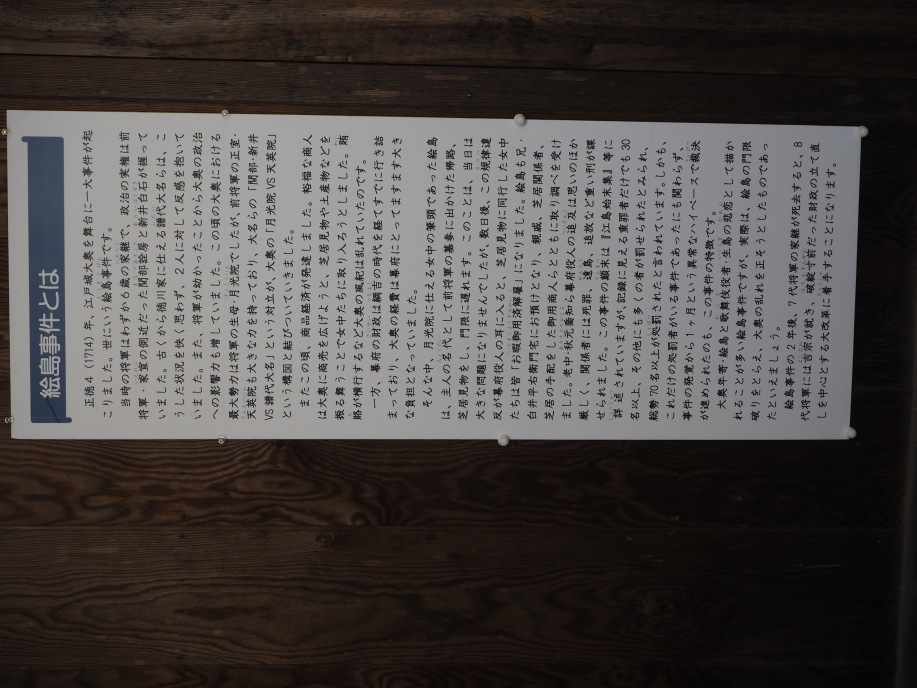 絵島事件とは
正徳4（1714）年、江戸城大奥を舞台に一大事件が起
こりました。世にいう絵島事件です。
当時の将軍はわずか6歳の家継で、政治の実権は前
将軍・家宣の側近だった間部詮房と新井白石が握って
いました。古くから徳川家に仕える譜代大名らは、こ
うした状況を快く思わず、2人に対して反感を抱いて
いました。また、将軍が幼かったことから大奥の政治
への影響力も増していました。この頃の大奥における
最大勢力は将軍の生母・月光院でしたが、前将軍の正室・
天英院も大きな力を持っており、大名らの「間部・新井
VS譜代大名」という対立が、大奥の「月光院VS天英院」
という構図と結びついていきました。
またこの頃、商品経済が発達しました。裕福な商人
は大奥に商売を広げようと、芝居見物や土産物などを
振る舞うことで女中たちに取り入ろうとしました。賄
賂が横行するなど大奥の風紀は乱れていたのです。
一方、幕府の財政は綱吉の時代を経てすでに行き詰
まっており、大奥の経費は幕府にとってますます大き
な負担となっていました。
そんな中、月光院に仕える女中の筆頭であった絵島
は、主人の名代として前将軍の墓参に出かけた帰路、
芝居見物をし、門限に遅れます。このことは、当日は
大きな問題になりませんでしたが、数日後、この規律違
反が幕府役人の耳に入ると、芝居見物に同行した女中
たちは皆「お暇御用済解雇」になりました。絵島も兄、
白井平右衛門宅にお預けとなり、親戚、芝居関係者、
芝居の手配をした御用商人らとともに取り調べを受け
ました。老中・秋元喬知から幕府役人の追及は思いのほか
厳しく、関係者には死罪、遠島、追放など重い刑が課
せられました。この事件の顛末は『江島始末集』等に
詳述されていますが、記録に見える重罪者だけでも30
名以上、その他にも多くの者が罰せられたとみられ、
総勢70名以上が処罰されたと言われています。しかも、
これだけの処罰者がいる事件であったにも関わらず、
事件の発覚から一ヶ月という異常なハイペースで裁決
が進められたのも、この事件の特徴です。
大奥年寄・絵島と歌舞伎役者・生島の悲恋として描か
れることが多い絵島事件ですが、実際は、絵島の門限
破りをとらえ、大奥の乱れを正そうとしたものであっ
たといえましょう。
絵島事件の2年後、7代将軍の家継が死去すると、8
代将軍には吉宗が就き、破綻寸前だった財政の立て直
しを中心とする大改革に着手することになります。